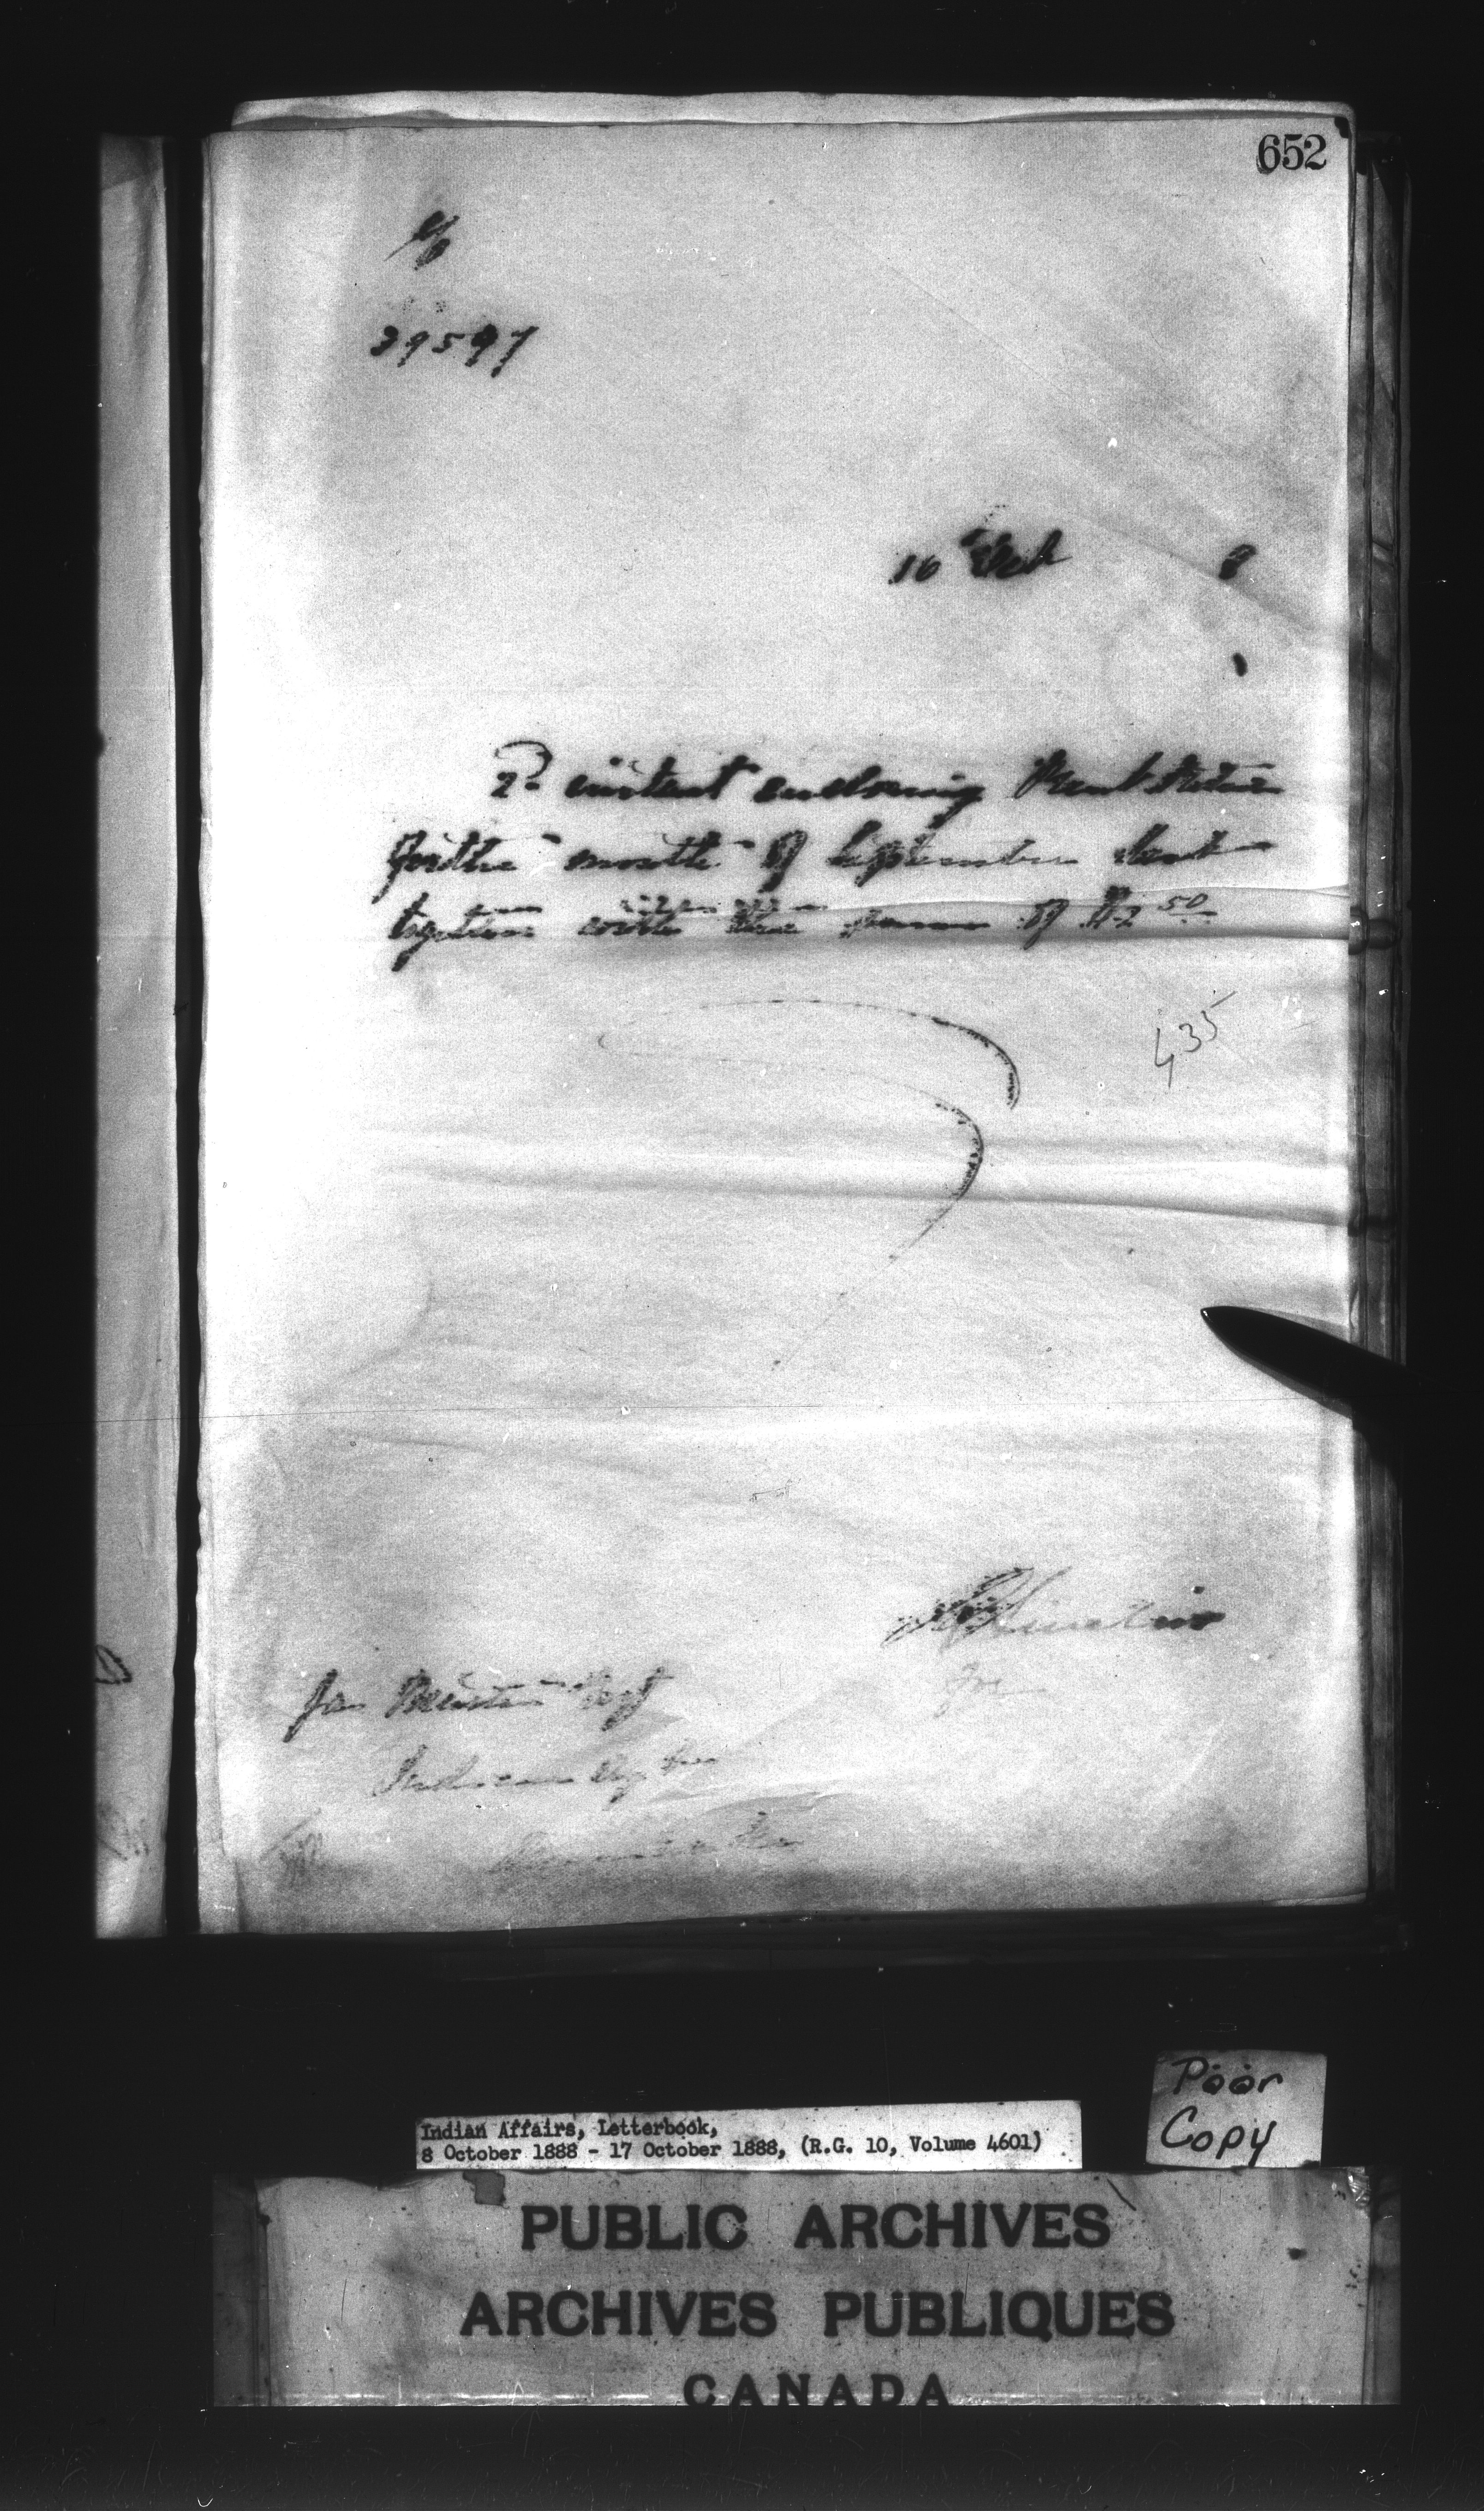 652
39597
16 Oct 8
2d instant enclosing Rent Return
for the month of September last
together with the sum of $2 50
435
R Sinclair
for
Jas Martin Esq
Indian Agt
Poor
Copy
Indian Affairs, Letterbook,
8 October 1888 - 17 October 1888, (R.G. 10, Volume 4601)
PUBLIC ARCHIVES
ARCHIVES PUBLIQUES
CANADA